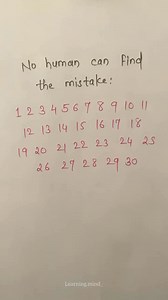 No human can find
the mistake:
1 2 3 4 5 6 7 8 9 10 11
12 13 14 15 16 17 18
19 20 21 22 23 24 25
26 27 28 29 30
Learning mind